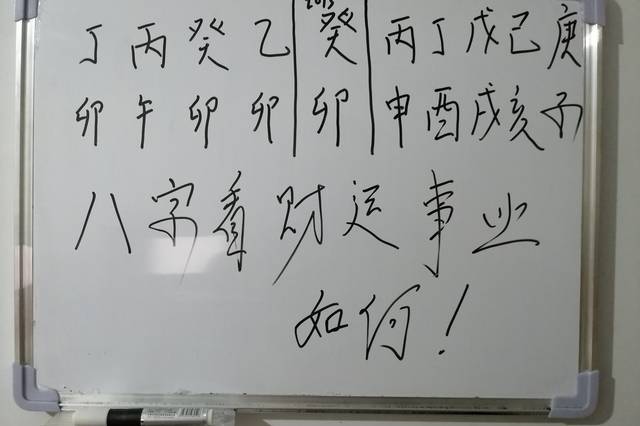 2023
丁丙癸乙 癸 丙丁戊己庚
卯午卯卯 卯 申酉戌亥子
八字看财运事业
如何！